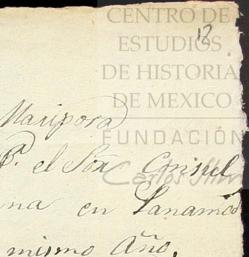 CENTRO DE
ESTUDIOS
DE HISTORIA
DE MEXICO
FUNDACIÓN
Carlos
18
Maripora
P. el Sor
na en
mismo Año,